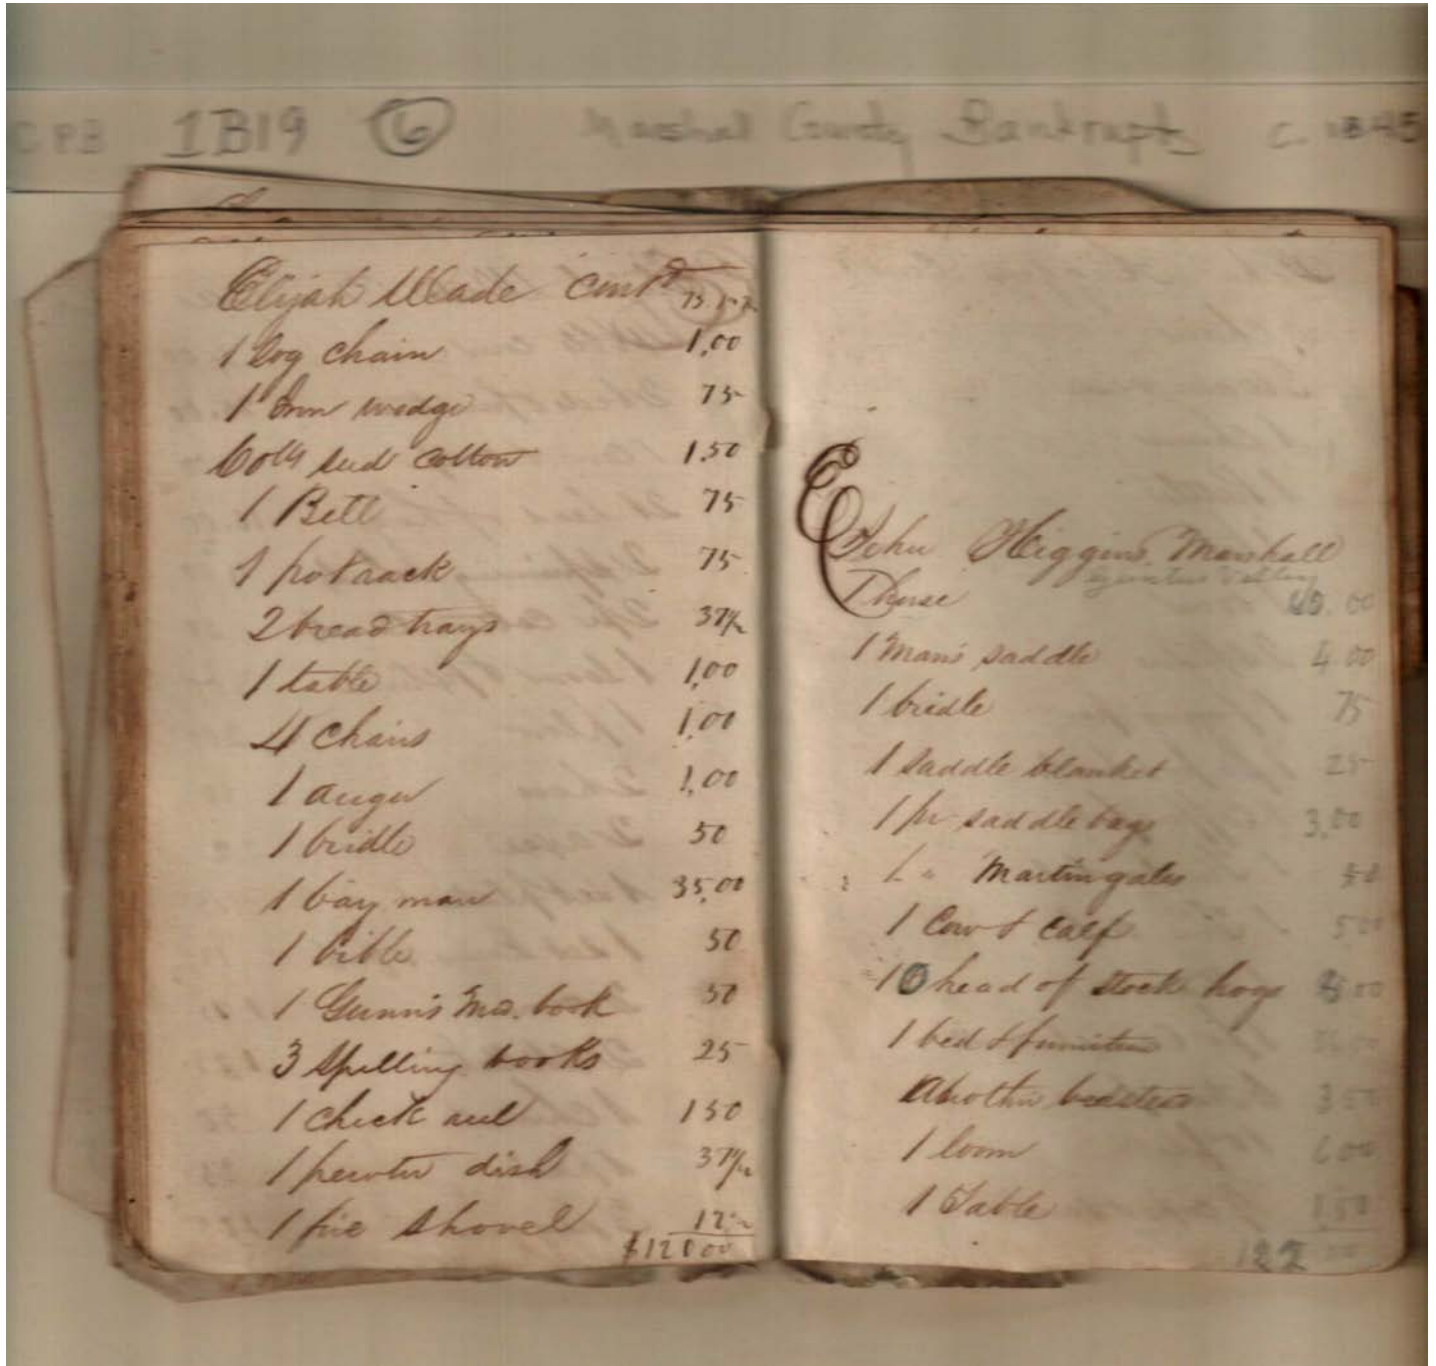 1B19 6 Marshal County Bankrupts
Elijah Wade cont'd
1 Log chain 1,00
1 Iron wedge 75
60 lbs seed cotton 1.50
1 Bell 75
1 potrack 75
2 bread trays 37½
1 table 1,00
4 chairs 1,00
1 auger 1,00
1 bridle 50
1 bay mare 35,00
1 bible 50
1 Gunn's Md. book 50
3 spelling books 25
1 check reel 150
1 pewter dish 37½
1 fire shovel 12½
$120 00
John Higgins Marshall
1 horse
1 Man's saddle 4 00
1 bridle 75
1 saddle blanket 25
1 pr saddle bags 3,00
1 " Martingales 50
1 Cow & calf 5 00
10 head of stock hogs
1 bed & furniture
Another bedstead 3 50
1 loom 6 00
1 Table 1,50